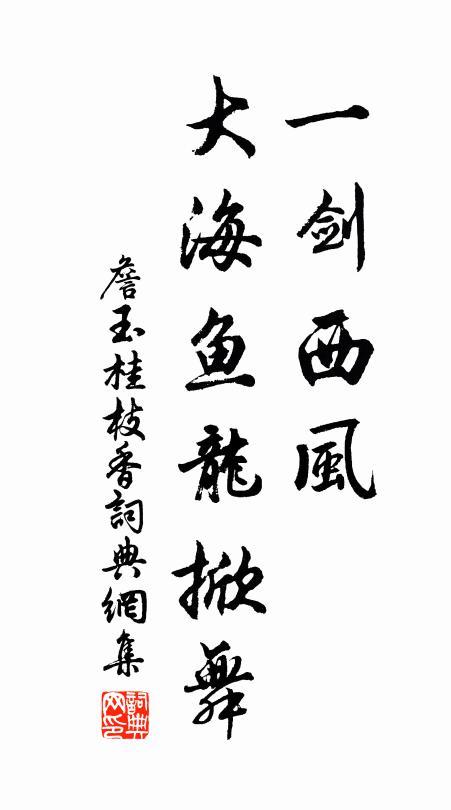 一剑西風
大海鱼龍掀舞
詹玉桂枝香詞典網集
詞典網印